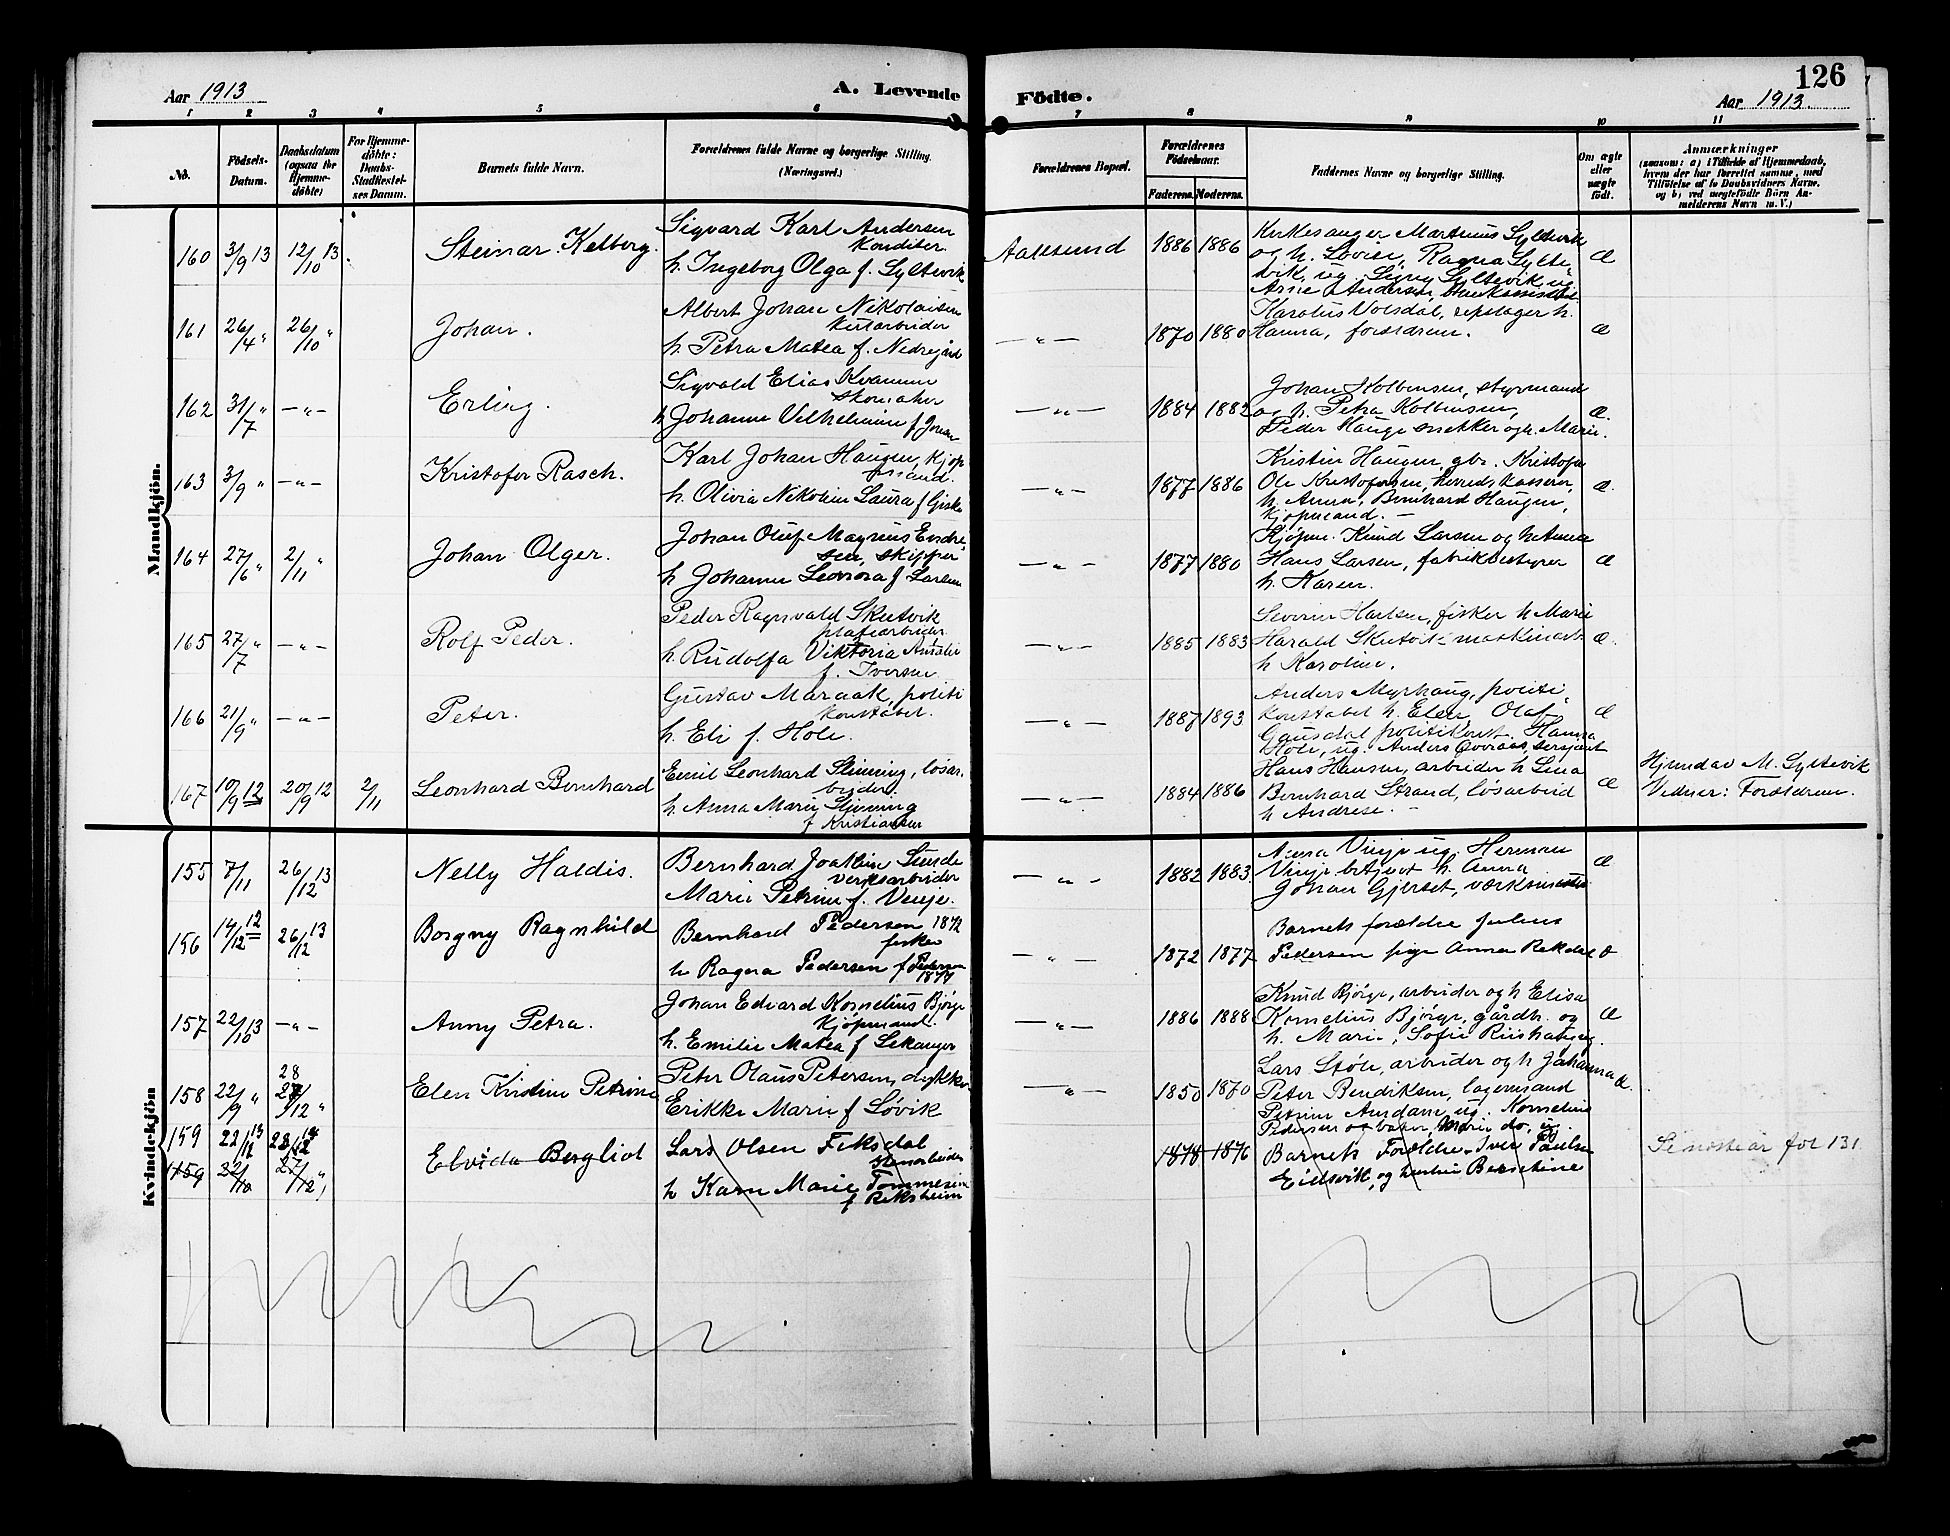 126
Aar 1913
A. Levende
Födte.
Aar 1913.
1 2 3 4 5 6 7 8 9 10 11
No.
Födsels-
Datum.
Daabsdatum
(ogsaa for
Hjemme-
döbte)
For Hjemme-
döbte:
Daabs-
Stadfæstel-
ses Datum.
Barnets fulde Navn.
Forældrenes fulde Navne og borgerlige Stilling.
(Næringsvei.)
Forældrenes Bopæl.
Forældrenes
Födselsaar.
Faderens. Moderens.
Faddernes Navne og borgerlige Stilling.
Om ægte
eller
uægte
født.
Anmærkninger
(saasom: a) i Tilfælde af Hjemmedaab,
hvem der har forrettet samme, med
Tilföielse af to Daabsvidners Navne,
og b) ved uægtefödte Börn An-
melderens Navn m. V.)
Mandkjön.
160 3/9 13 12/10 13
Steinar Kelberg.
Sigvard Karl Andersen
konditor
h. Ingeborg Olga f. Syltevik
Aalesund
1886 1886
Kirkesanger Martinus Syltevik
og h. Lovise, Ragna Sylte-
vik, ug. Signy Syltevik, ug.
Arne Andersen,
Æ
161 26/4 " 26/10 "
Johan.
Albert Johan Nikolaisen
h. Petra Matea f. Nedregård
— " —
1870 1880
Karolus Volsdal, repslager h.
Hanna, forældrene.
Æ
162 31/7 " — " —
Erling.
Sigvald Elias Kvamme
skomaker
h Johanne Vilhelmine f.
— " —
1884 1882
Johan Kolbensen, styrmand
og h. Petra Kolbensen,
Peder Hauge snekker og h. Marie.
Æ.
163 3/9 " — " —
Kristofer Rasch.
Karl Johan Haugen, kjøp-
mand.
h. Olivia Nikoline Laura f Giske
— " —
1877 1886
Kristin Haugen, gbr. Kristofer
Ole Kristofersen, herredskasserer,
h. Anna, Bernhard Haugen,
kjøpmand. —
Æ.
164 27/6 " 2/11 "
Johan Olger.
Johan Oluf Magnus Endre-
sen, skipper
h Johanne Leonora f Larsen
— " —
1877 1880
Kjøpm. Knud Larsen og h Anna
Hans Larsen, fabrikbestyrer
h. Karen.
Æ
165 27/7 " — " —
Rolf Peder.
Peder Ragnvald Skutvik
h. Rudolfa Viktoria Amalie
f. Iversen
— " —
1885 1883
Severin Karlsen, fisker h Marie
Harald Skutvik maskinist
h Karoline.
Æ.
166 21/9 " — " —
Peter.
Gustav Maraak, politi
konstabel.
h. Eli f. Hole.
— " —
1887 1893
Anders Myrhaug, politi-
konstabel h. Elen, Olaf
Gausdal politikonst. Hanna
Hole, ug. Anders Overaas, sersjant
Æ
167 10/9 12 20/9 12 2/11
Leonhard Bernhard
Emil Leonhard Slinning, løsar-
beider.
h. Anna Marie Slinning
f Kristiansen
1884 1886
Hans Hansen, arbeider h Lina
Bernhard Strand, løsarbeid
h Andrese. —
Æ
Hjemdøv M. Syltevik
Vidner: Forældrene.
Kvindekjön
155 7/11 26/12 13
Nelly Haldis.
Bernhard Joakim Sunde
verksarbeider
Marie Petrine f. Vinje.
— " —
1882 1883.
Anna Vinje ug. Herman
Vinje betjent h. Anna
Johan Gjerset, værksmester
Æ
156 14/12 12 26/12 13
Borgny Ragnhild
Bernhard Pedersen 1872
fisker
h Ragna Pedersen f Pedersen
1877
— " —
1872 1877
Barnets forældre Julius
Pedersen pige Anna Rekdal
Æ
157 22/10 13 — " —
Anny Petra.
Johan Edvard Kornelius Bjørge
Kjøpmand.
h. Emilie Matea f Sekanger
— " —
1886 1888
Knud Bjørge, arbeider og h Elisa
Kornelius Bjørge, gårdh. og
h. Marie, Sofie ug.
Æ
158 22/9 " 28 27/12 "
Elen Kristine Petrine
Peter Olaus Petersen, dykker
Erikke Marie f Løvik
— " —
1850 1870
Lars Støle, arbeider og h Johanna
Peter Bendiksen, lagermand
Petrine Aurdane, ug. Kornelius
Pedersen og barn, Marie do, ug.
Æ.
159 22/12 13 28/12 14
159 22/10 27/12 "
Elvida Bergliot
Lars Olsen Fiksdal
h Karn Marie Tommesen
f Reksheim
1878 1876
Barnets Forældre Iver Paulsen
Eidsvik, og hustru Berntine
Se næste år fol 131